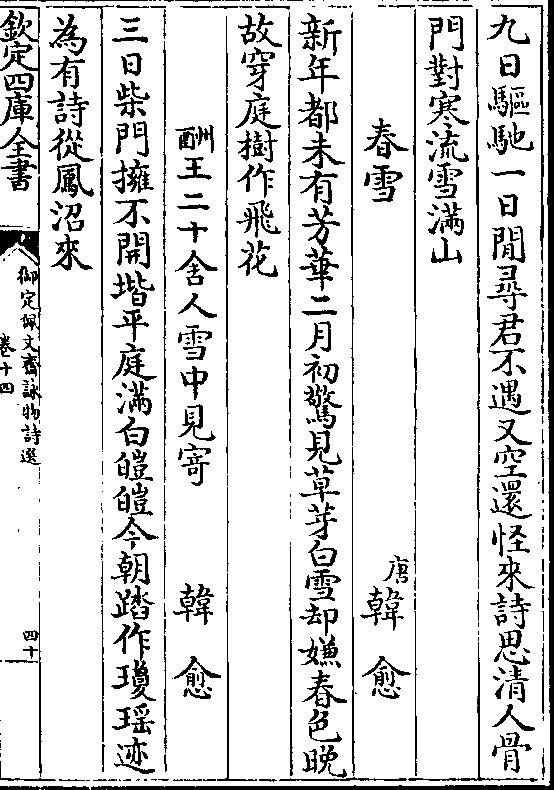 九日驅馳一日閒尋君不遇又空還怪來詩思清人骨
門對寒流雪滿山
春雪 唐韓愈
新年都未有芳華二月初驚見草芽白雪却嫌春色晚
故穿庭樹作飛花
酬王二十舍人雪中見寄 韓愈
三日柴門擁不開堦平庭滿白皚皚今朝踏作瓊瑶迹
為有詩從鳳沼來
欽定四庫全書
御定佩文齋詠物詩選
卷十四
四十